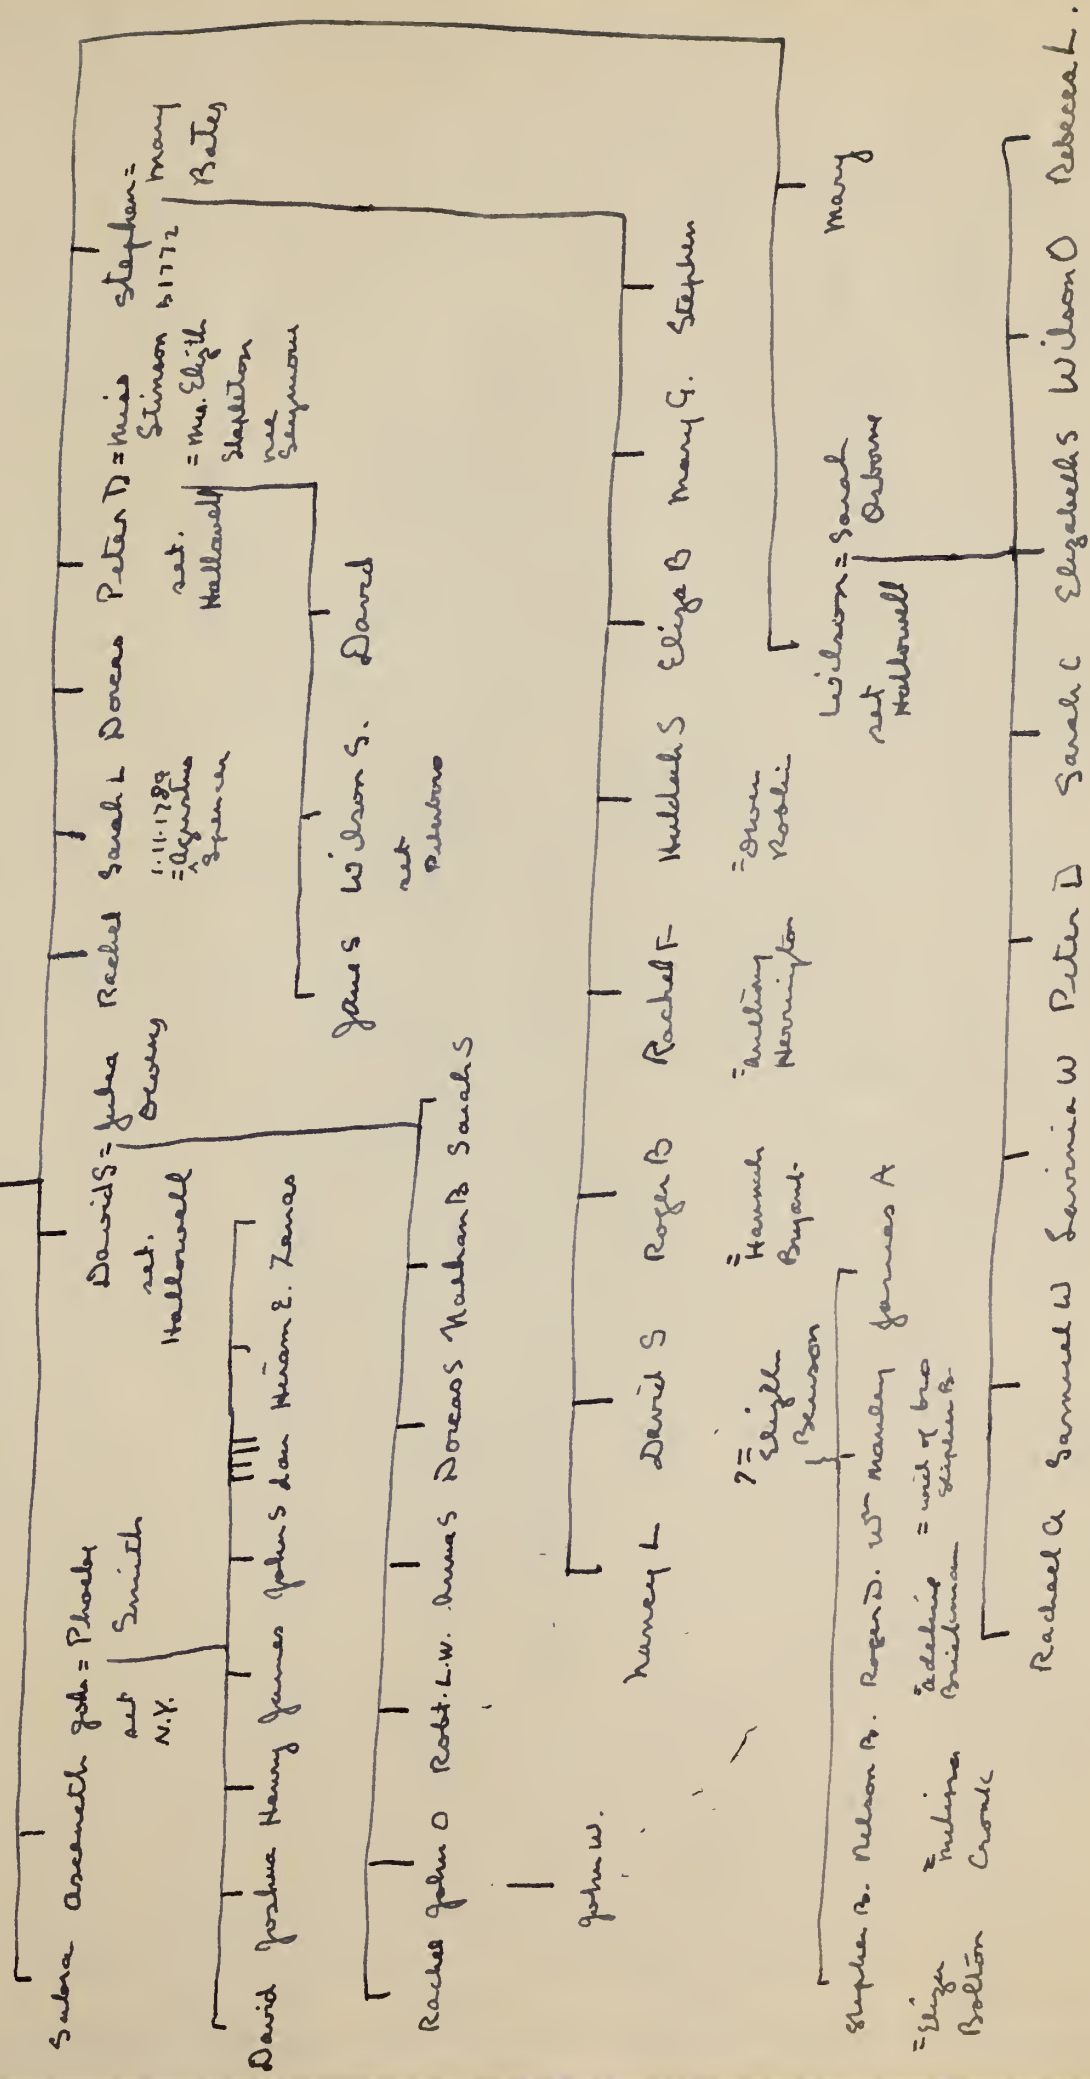 Sabra Aseneth John = Phoeby Smith
set N.Y.
David S = Julia Owens
set. Hallowell
Rachel Sarah L Dorcas Peter D = Miss Stinson
1.11.1789
= Agustus Spencer
set. Hallowell
= Mrs. Elizth Stapleton nee Seymour
Stephen = Mary Bates
b 1772
David Joshua Henry James John S Dan Hiram E. Zenas
Jane S Wilson S. David
set
Rachel John O Robt. L.W. Annas Dorcas S Nathan B Sarah S
John W.
Nancy L David S Roger B Rachel F Huldah S Eliza B Mary G. Stephen
?= Elizth Benson
= Hannah Bryant
= Anthony Herrington
= Owen Roblin
Wilson = Sarah Osborne
set Hallowell
Mary
Stephen B. Nelson B. Roger D. Wm Manley James A
= Eliza Bolton
= Melissa Cronk
= Adeline Brickman
= wid of bro Stephen B.
Rachael A Samuel W Lavinia W Peter D Sarah C Elizabeth S Wilson O Rebecca L.